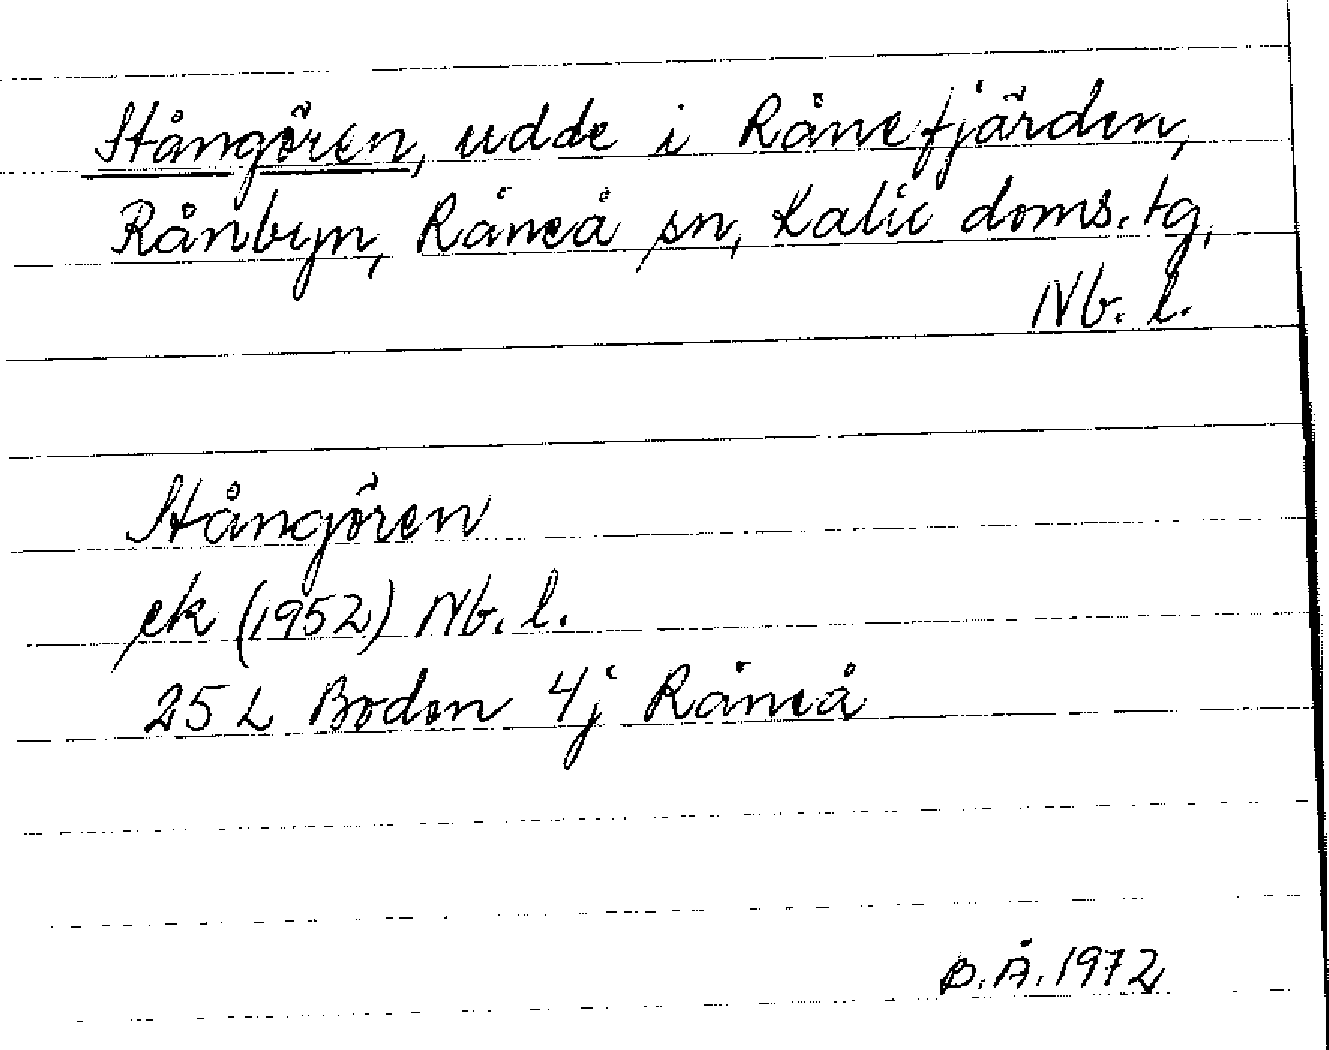 Stångören, udde i Rånefjärden,
Rånbyn, Råneå sn, Kalix doms. tg,
Nb. l.
Stångören
ek (1952) Nb. l.
25 L Boden 4j Råneå
B.Å. 1972